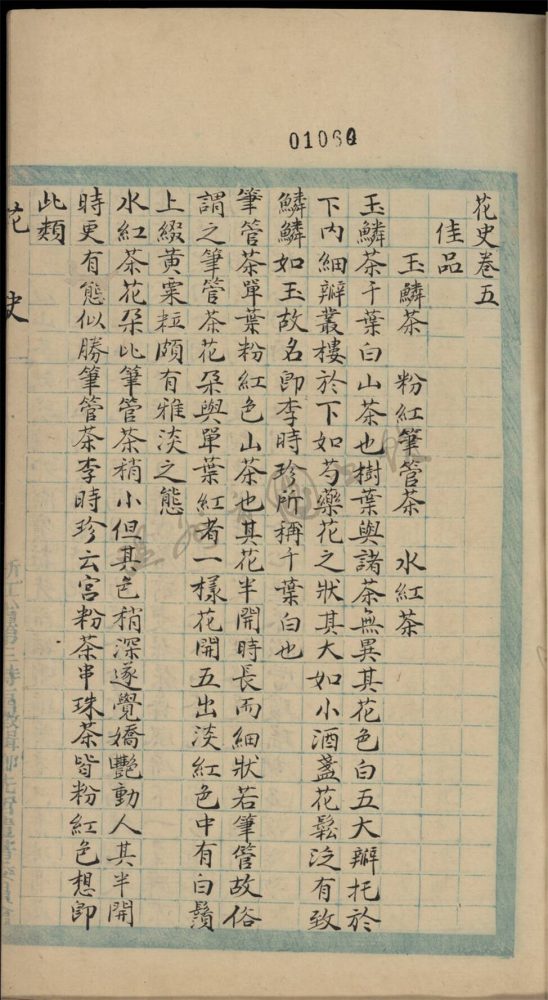 01060
花史卷五
佳品
玉鱗茶 粉紅筆管茶 水紅茶
玉鱗茶千葉白山茶也樹葉與諸茶無異其花色白五大瓣托於
下內細瓣叢樓於下如芍藥花之狀其大如小酒盞花鬆泛有致
鱗鱗如玉故名即李時珍所稱千葉白也
筆管茶單葉粉紅色山茶也其花半開時長而細狀若筆管故俗
謂之筆管茶花朵與單葉紅者一樣花開五出淡紅色中有白鬚
上綴黃粟粒頗有雅淡之態
水紅茶花朵比筆管茶稍小但其色稍深遂覺嬌艷動人其半開
時更有態似勝筆管茶李時珍云宮粉茶串珠茶皆粉紅色想即
此類
花史